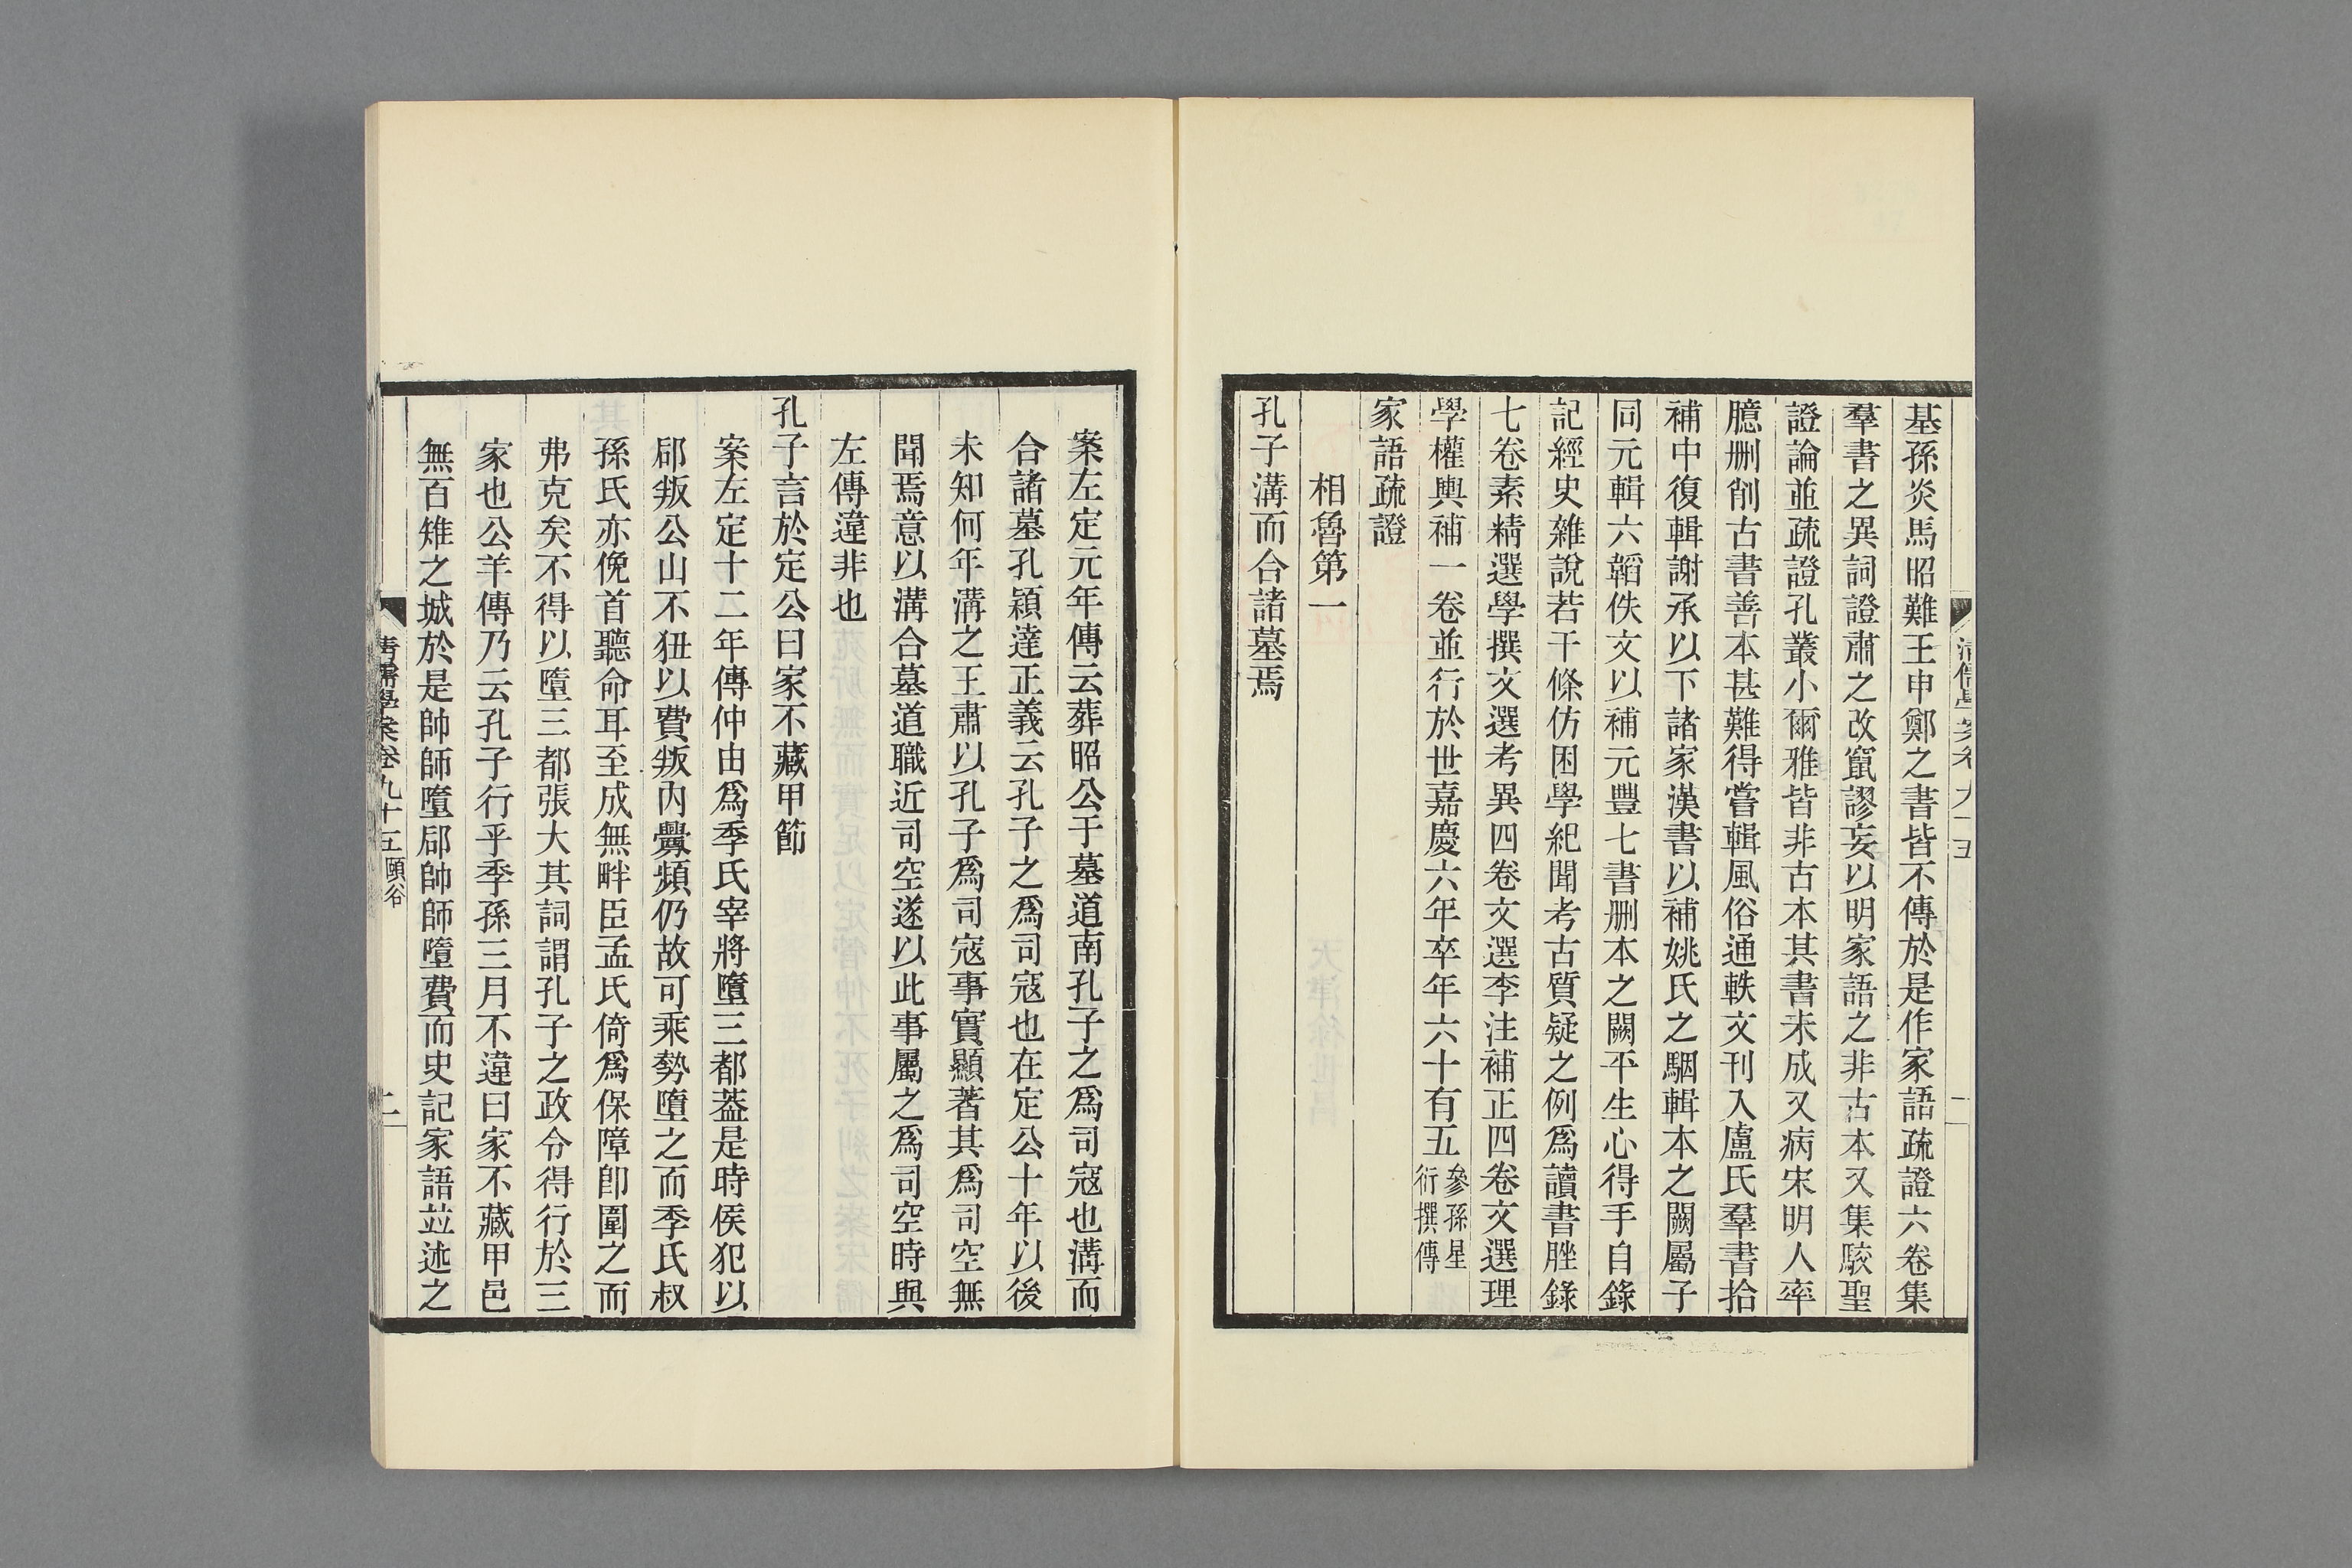 基孫炎馬昭難王申鄭之書皆不傳於是作家語疏證六卷集
羣書之異詞證肅之改竄謬妄以明家語之非古本又集駮聖
證論並疏證孔叢小爾雅皆非古本其書未成又病宋明人率
臆刪削古書善本甚難得嘗輯風俗通軼文刊入盧氏羣書拾
補中復輯謝承以下諸家漢書以補姚氏之駰輯本之闕屬子
同元輯六韜佚文以補元豐七書刪本之闕平生心得手自錄
記經史雜說若干條仿困學紀聞考古質疑之例爲讀書脞錄
七卷素精選學撰文選考異四卷文選李注補正四卷文選理
學權輿補一卷並行於世嘉慶六年卒年六十有五參孫星衍撰傳
家語疏證
相魯第一
孔子溝而合諸墓焉
案左定元年傳云葬昭公于墓道南孔子之爲司寇也溝而
合諸墓孔穎達正義云孔子之爲司寇也在定公十年以後
未知何年溝之王肅以孔子爲司寇事實顯著其爲司空無
聞焉意以溝合墓道職近司空遂以此事屬之爲司空時與
左傳違非也
孔子言於定公曰家不藏甲節
案左定十二年傳仲由爲季氏宰將墮三都葢是時侯犯以
郈叛公山不狃以費叛內釁頻仍故可乘勢墮之而季氏叔
孫氏亦俛首聽命耳至成無畔臣孟氏倚爲保障卽圍之而
弗克矣不得以墮三都張大其詞謂孔子之政令得行於三
家也公羊傳乃云孔子行乎季孫三月不違曰家不藏甲邑
無百雉之城於是帥師墮郈帥師墮費而史記家語竝述之
清儒學案卷九十五 頤谷
二